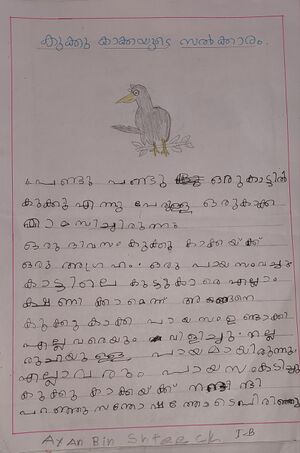 കുക്കു കാക്കയുടെ സൽക്കാരം.
പണ്ടു പണ്ടു ഒരുകാട്ടിൽ
കുക്കു എന്നു പേരുള്ള ഒരുകാക്ക
താമസിച്ചിരുന്നു
ഒരു ദിവസം കുക്കു കാക്കയ്ക്ക്
ഒരു ആഗ്രഹം ഒരു പായസംവച്ചു
കാട്ടിലെ കൂട്ടുകാരെ എല്ലാം
ക്ഷണിക്കാമെന്ന് അങ്ങനെ
കുക്കു കാക്ക പായസം ഉണ്ടാക്കി
എല്ലാവരെയും വിളിച്ചു നല്ല
രുചിയുള്ള പായസമായിരുന്നു
എല്ലാവരും പായസംകുടിച്ചു
കുക്കു കാക്കയ്ക്ക് നന്ദി
പറഞ്ഞുസന്തോഷത്തോടെപിരിഞ്ഞു
AYAN Bin Shteeck I-B